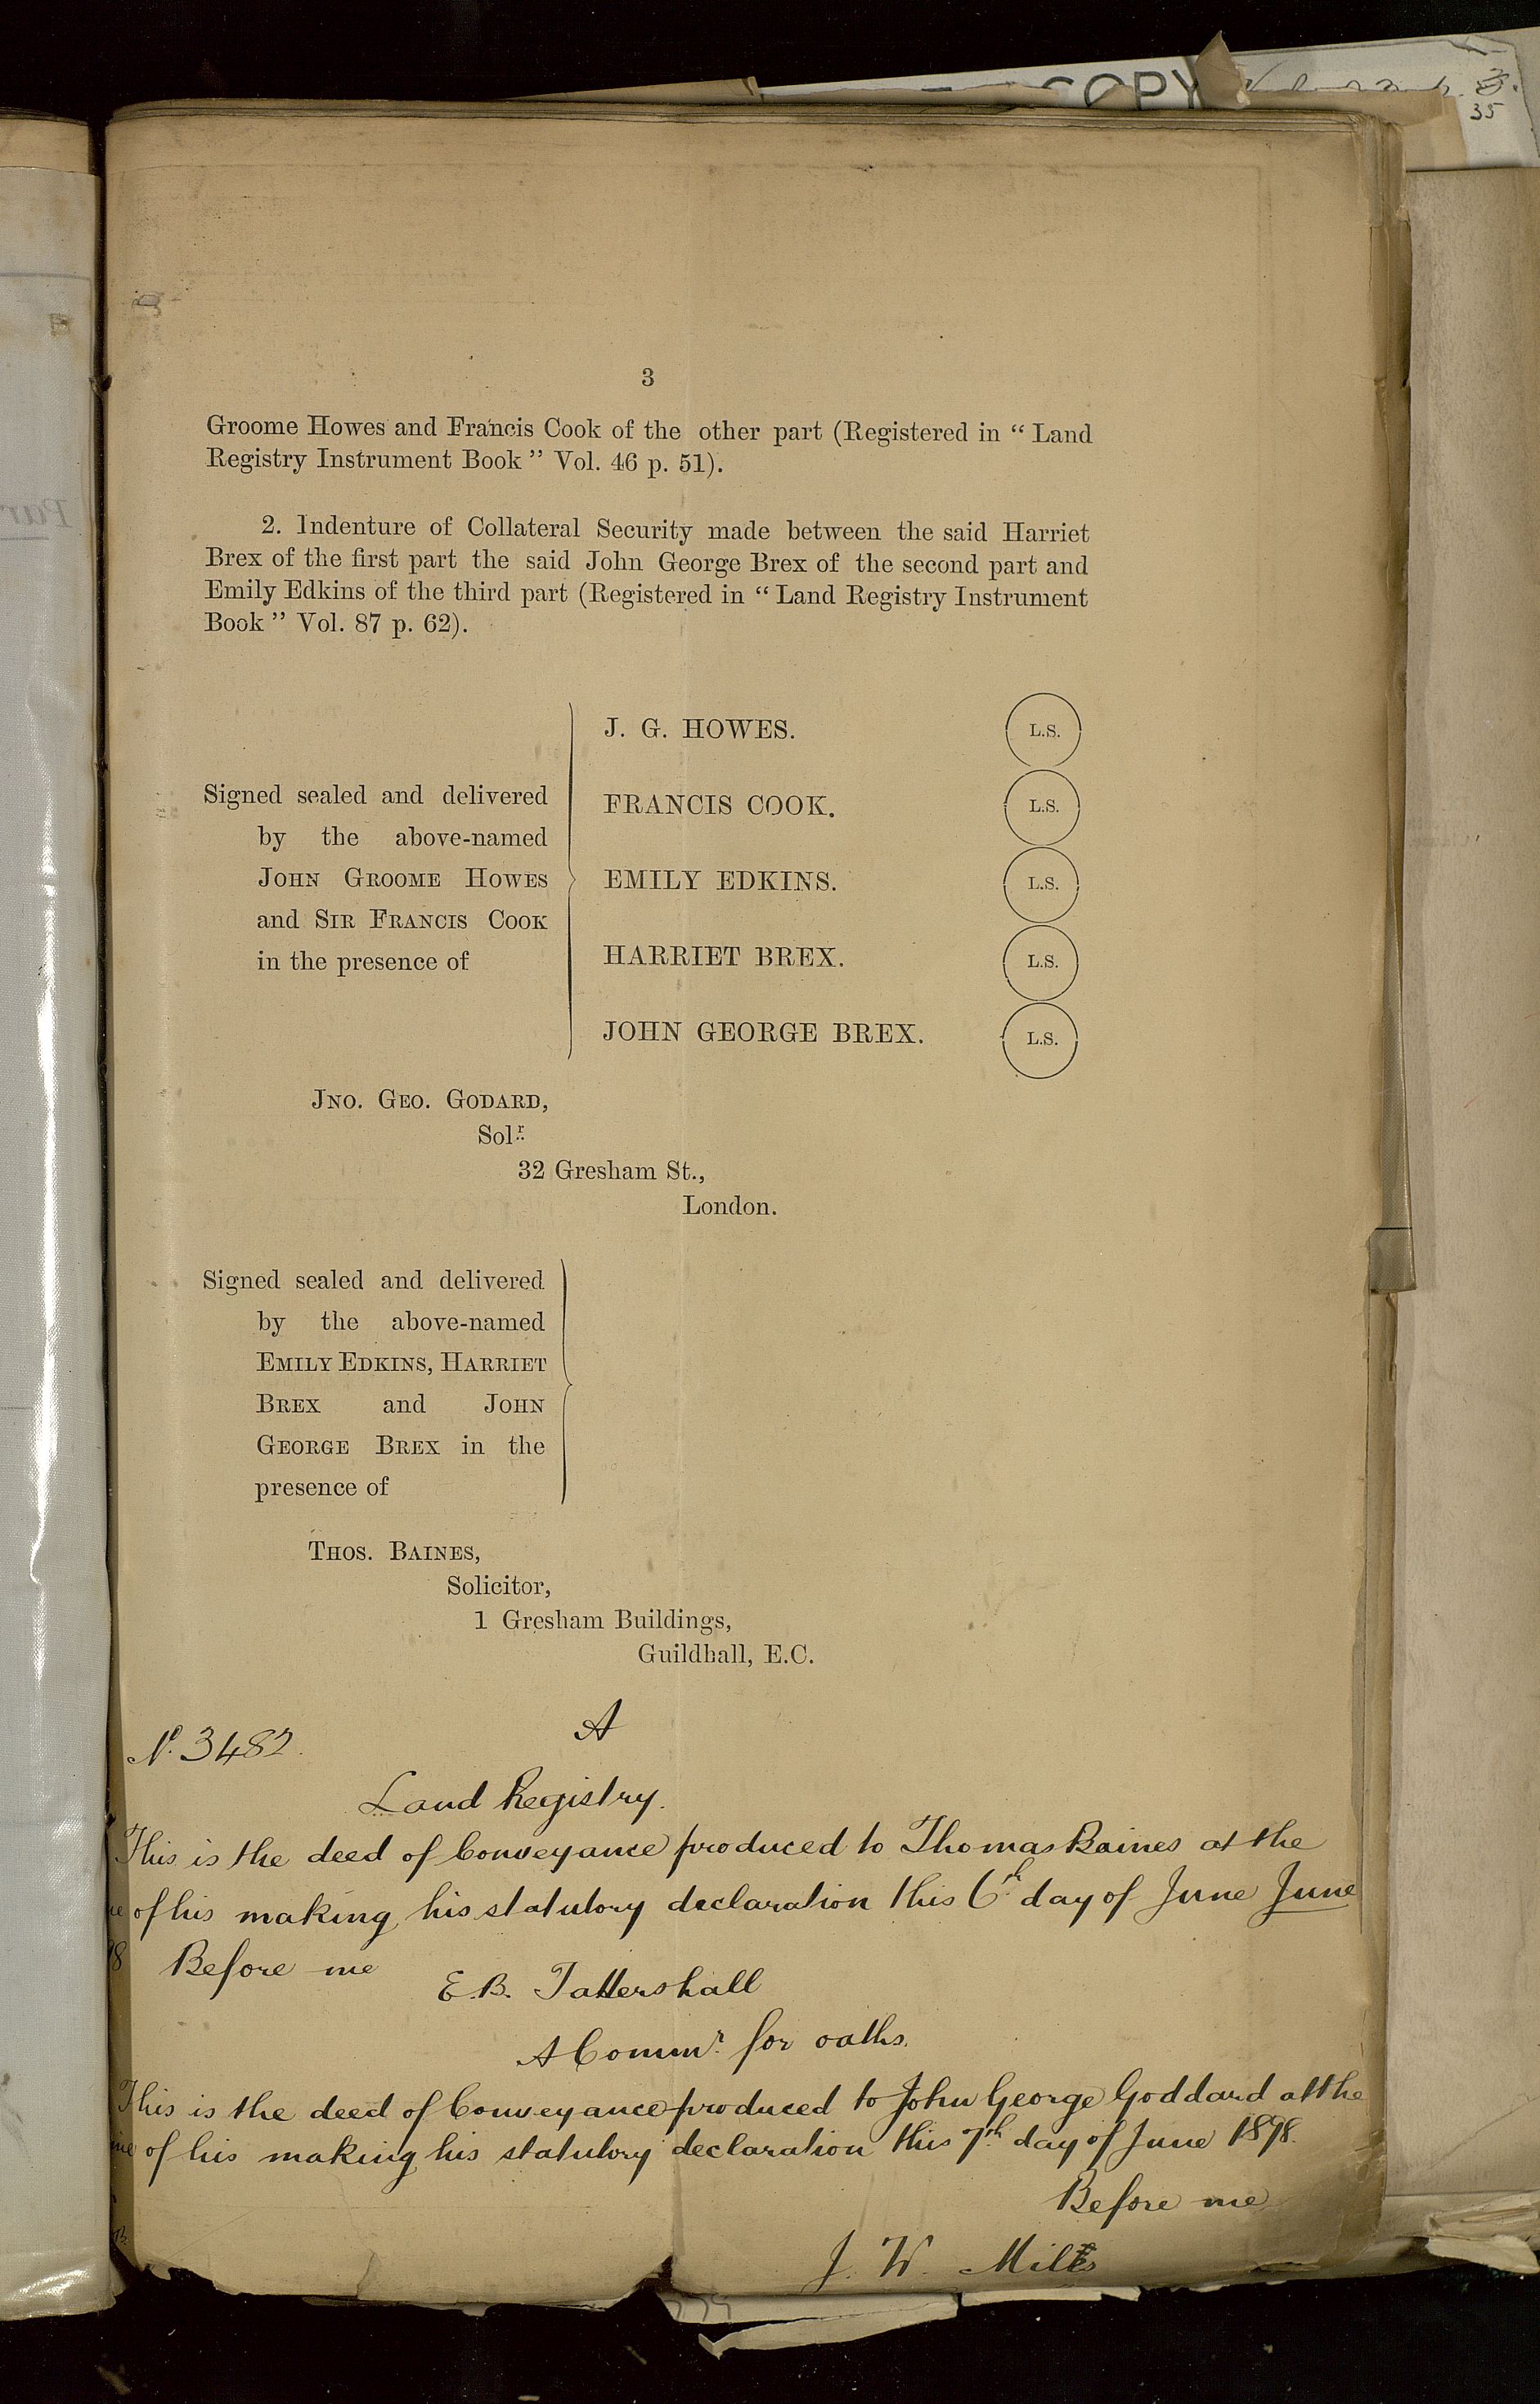 COPY
35
3
Groome Howes and Francis Cook of the other part (Registered in “ Land
Registry Instrument Book ” Vol. 46 p. 51).
2. Indenture of Collateral Security made between the said Harriet
Brex of the first part the said John George Brex of the second part and
Emily Edkins of the third part (Registered in “ Land Registry Instrument
Book ” Vol. 87 p. 62).
Signed sealed and delivered
by the above-named
John Groome Howes
and Sir Francis Cook
in the presence of
J. G. HOWES. L.S.
FRANCIS COOK. L.S.
EMILY EDKINS. L.S.
HARRIET BREX. L.S.
JOHN GEORGE BREX. L.S.
Jno. Geo. Godard,
Solr.
32 Gresham St.,
London.
Signed sealed and delivered
by the above-named
Emily Edkins, Harriet
Brex and John
George Brex in the
presence of
Thos. Baines,
Solicitor,
1 Gresham Buildings,
Guildhall, E.C.
A
No. 3482.
Land Registry.
This is the deed of Conveyance produced to Thomas Baines at the
of his making his statutory declaration this 6th day of June June
8 Before me
E. B. Tattershall
A Commr. for oaths.
This is the deed of Conveyance produced to John George Goddard at the
me of his making his statutory declaration this 7th day of June 1898.
Before me
J. W. Mills